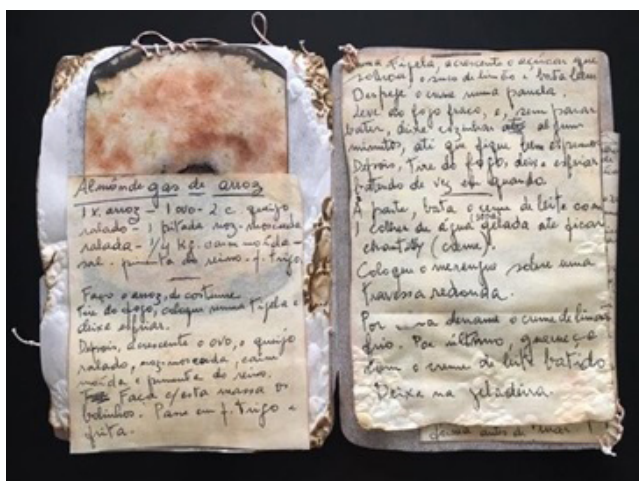 Almôndegas de arroz
1 x. arroz - 1 ovo - 2 c. queijo
ralado - 1 pitada noz-moscada
ralada - 1/4 kg. carne moída -
sal. pimenta do reino. f. trigo
Faço o arroz, de costume
tire do fogo, coloque numa tijela e
deixa esfriar.
Depois, acrescente o ovo, o queijo
ralado, noz-moscada, carne
moída e pimenta do reino.
Faça c/esta massa os
bolinhos. Passe em f. trigo e
frita.
uma tijela, acrescente o açúcar que
sobrou, o suco de limão e bata bem
Despeje o creme numa panela.
leve ao fogo fraco, e, sem parar
bater, deixe cozinhar até alguns
minutos, até que fique bem espumoso
Depois, tire do fogo, deixe esfriar
batendo de vez em quando.
À parte, bata o creme de leite com
1 colher de água (sopa) gelada até ficar
chantilly (creme).
Coloque o merengue sobre uma
travessa redonda.
Por cima derrame o creme de limão
frio. Por último, guarneça
com o creme de leite batido
Deixa na geladeira.
antes de